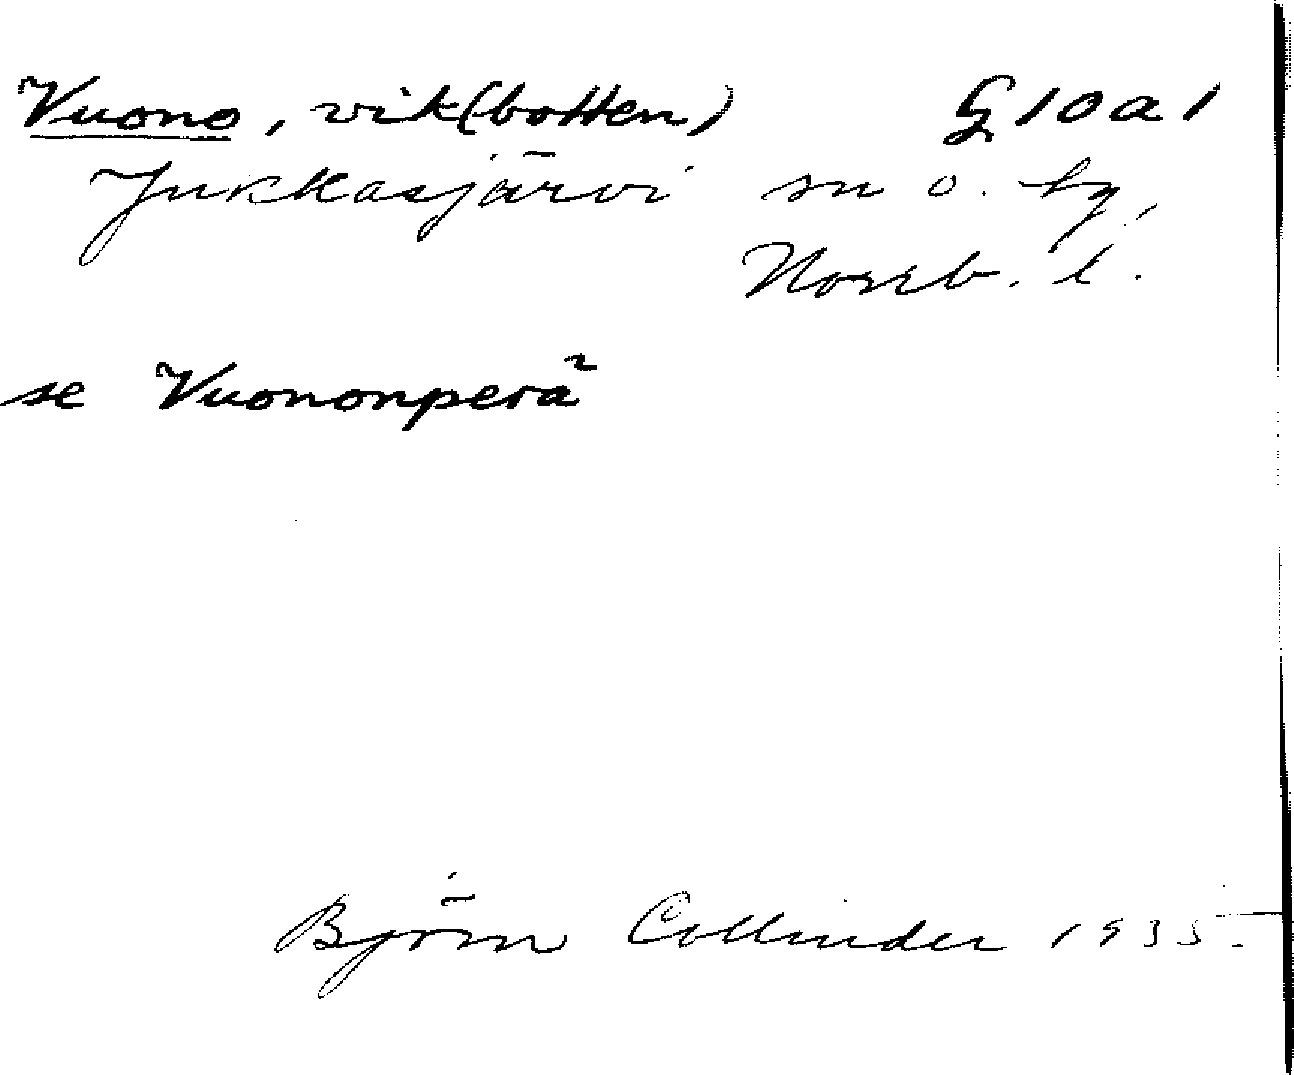 Vuono, vik(botten) G 10 a 1
Jukkasjärvi sn o. hg,
Norrb. l.
se Vuononperä
Björn Collinder 1935.